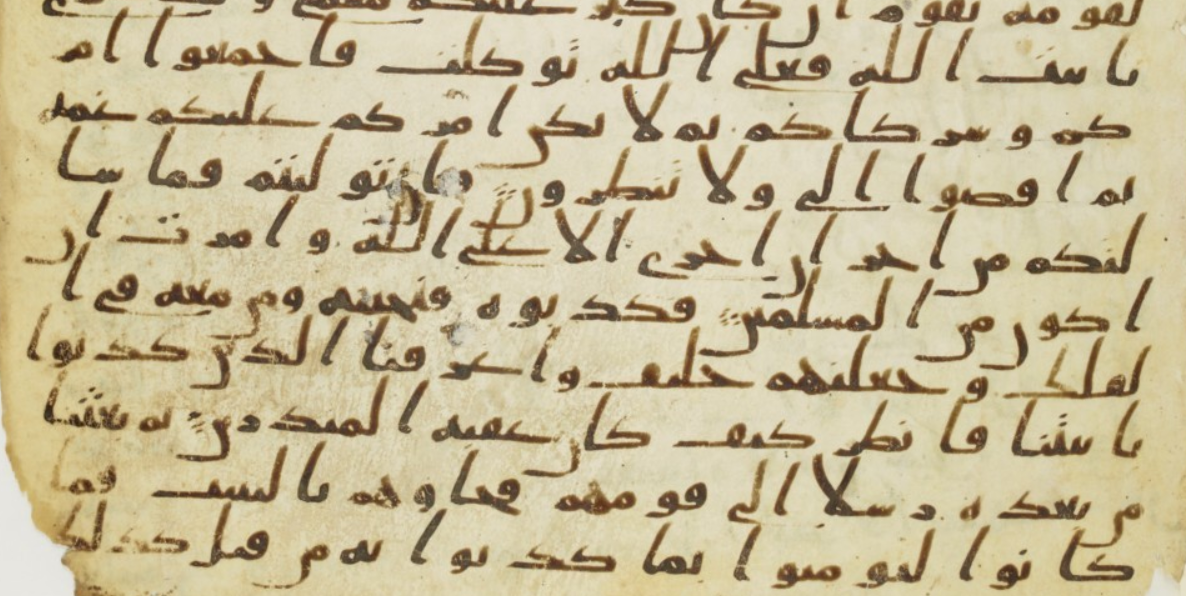 لقومه يقوم ان كان كبر عليكم مقامي و تذكيري
باييت الله فعلى الله توكلت فاجمعوا امر
كم و شركاكم ثم لا يكن امركم عليكم غمه
ثم اقضوا الي ولا تنظرون فان توليتم فما سا
لتكم من اجر ان اجري الا على الله و امرت ان
اكون من المسلمين فكذبوه فنجينه ومن معه في ا
لفلك و جعلنهم خليف واغرقنا الذين كذبوا
باييتنا فانظر كيف كان عقبه المنذرين ثم بعثنا
من بعده رسلا الى قومهم فجاوهم بالبينت فما
كانوا ليومنوا بما كذبوا به من قبل كذلك